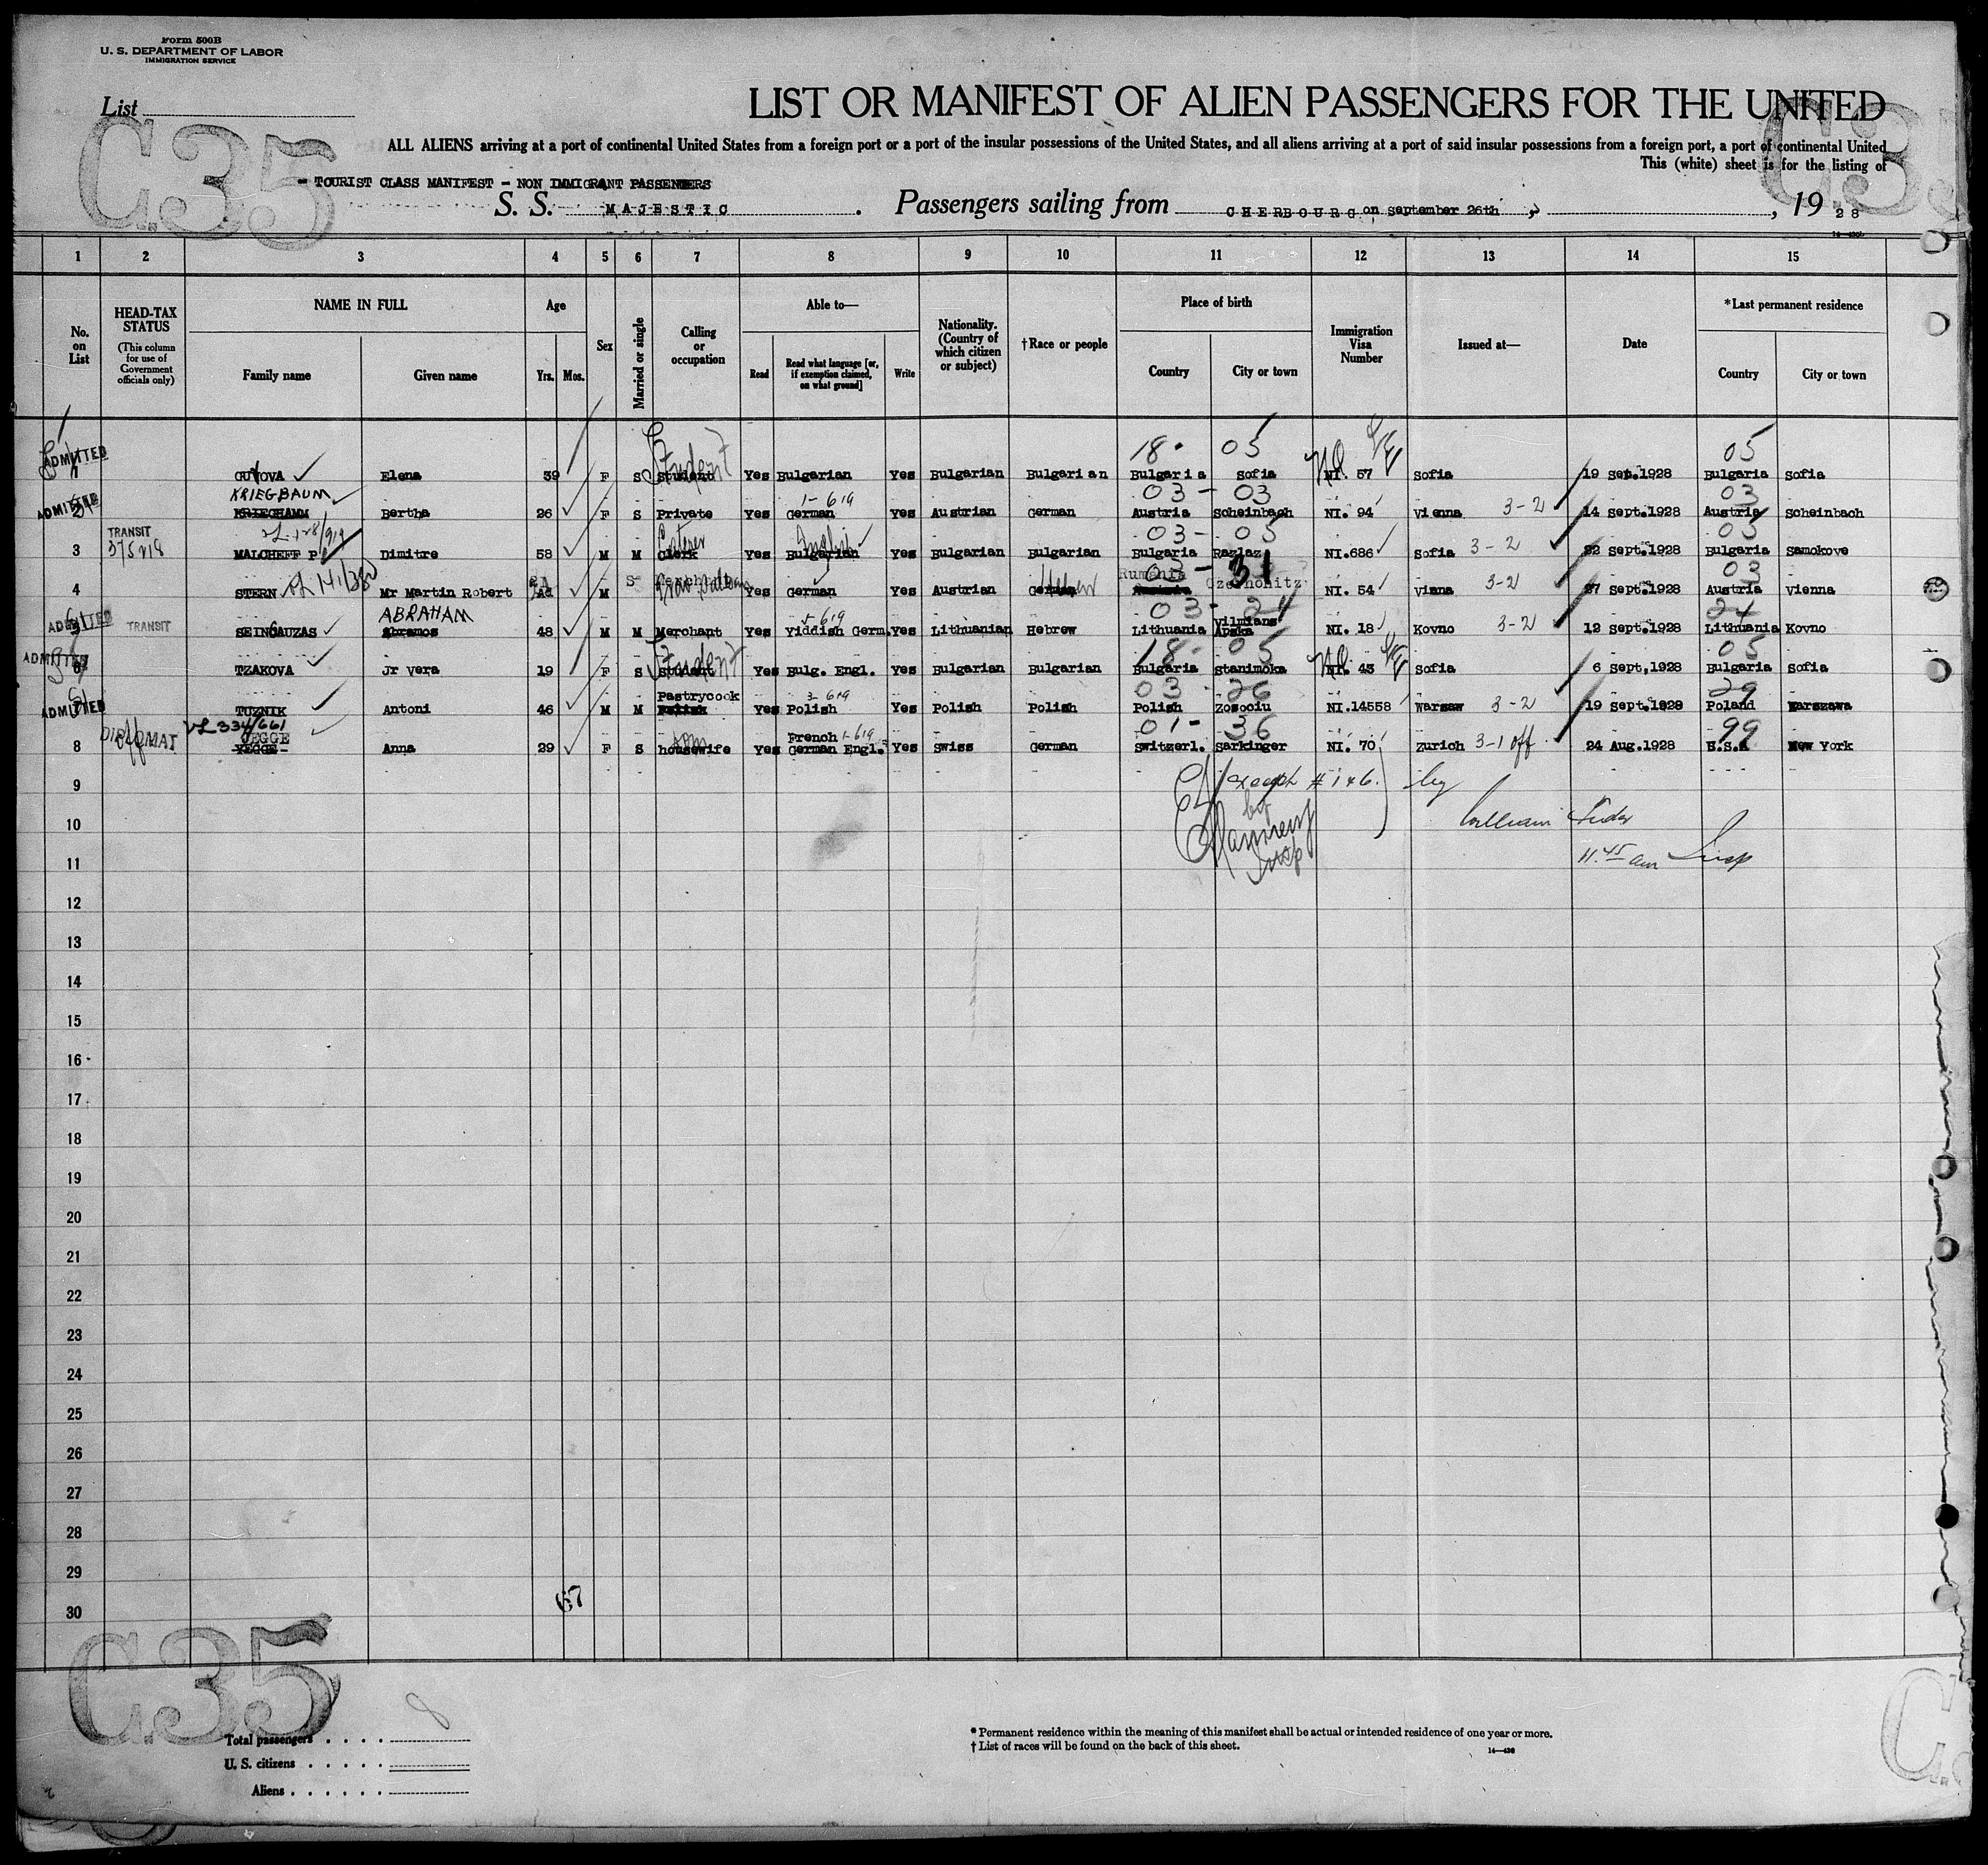 Form 500B
U. S. DEPARTMENT OF LABOR
IMMIGRATION SERVICE
List
C.35
C.35
LIST OR MANIFEST OF ALIEN PASSENGERS FOR THE UNITED
ALL ALIENS arriving at a port of continental United States from a foreign port or a port of the insular possessions of the United States, and all aliens arriving at a port of said insular possessions from a foreign port, a port of continental United
This (white) sheet is for the listing of
- TOURIST CLASS MANIFEST - NON IMMIGRANT PASSENGERS
S. S. MAJESTIC. Passengers sailing from CHERBOURG on september 26th, 19 28
1 2 3 4 5 6 7 8 9 10 11 12 13 14 15
No. on List
HEAD-TAX STATUS
(This column for use of Government officials only)
NAME IN FULL
Family name Given name
Age
Yrs. Mos.
Sex
Married or single
Calling or occupation
Able to—
Read Read what language [or, if exemption claimed, on what ground] Write
Nationality. (Country of which citizen or subject)
†Race or people
Place of birth
Country City or town
Immigration Visa Number
Issued at—
Date
*Last permanent residence
Country City or town
Student 18. 05 05
ADMITTED 1 GUVOVA Elena 39 F S student Yes Bulgarian Yes Bulgarian Bulgarian Bulgaria Sofia NI. 57 Sofia 19 sept.1928 Bulgaria Sofia
KRIEGBAUM 1-619 03 - 03 03
ADMITTED 2 KRIEGHAMM Bertha 26 F S Private Yes German Yes Austrian German Austria Scheinbach NI. 94 Vienna 3-2 14 sept.1928 Austria Scheinbach
TRANSIT English 03 - 05 05
3 375918 MALCHEFF P Dimitre 58 M M Clerk Yes Bulgarian Yes Bulgarian Bulgarian Bulgaria Razlaz NI.686 Sofia 3-2 22 sept.1928 Bulgaria Samokove
Hebrew Rumania 03 - 31 Czernohitz 03
4 STERN Mr Martin Robert M S Yes German Yes Austrian German NI. 54 3-2 Austria Vienna
ABRAHAM 5-619 03 - 24 Vilmians 24
ADMITTED 5 TRANSIT SEINGAUZAS Abramos 48 M M Merchant Yes Yiddish Germ. Yes Lithuanian Hebrew Lithuania Apska NI. 18 Kovno 3-2 12 sept.1928 Lithuania Kovno
Student 18. 05 05
ADMITTED 6 TZAKOVA Jr Vera 19 F S student Yes Bulg. Engl. Yes Bulgarian Bulgarian Bulgaria Stanimoka NI. 43 Sofia 6 sept.1928 Bulgaria Sofia
Pastrycook 3-619 03 - 26 29
ADMITTED 7 TUZNIK Antoni 46 M M Yes Polish Yes Polish Polish Polish Zosociu NI.14558 Warsaw 3-2 19 sept.1928 Poland Warszawa
DIPLOMAT JEGGE French 1-619 01 - 36 99
8 YEGGE Anna 29 F S housewife Yes German Engl. Yes Swiss German Switzerl. Sarkinger NI. 70 Zurich 3-1 off 24 Aug.1928 U.S.A New York
9 except # 1 & 6. by
10 by William
11 Insp 11.45 am Insp
12
13
14
15
16
17
18
19
20
21
22
23
24
25
26
27
28
29
30
67
C.35
8
Total passengers
U. S. citizens
Aliens
* Permanent residence within the meaning of this manifest shall be actual or intended residence of one year or more.
† List of races will be found on the back of this sheet.